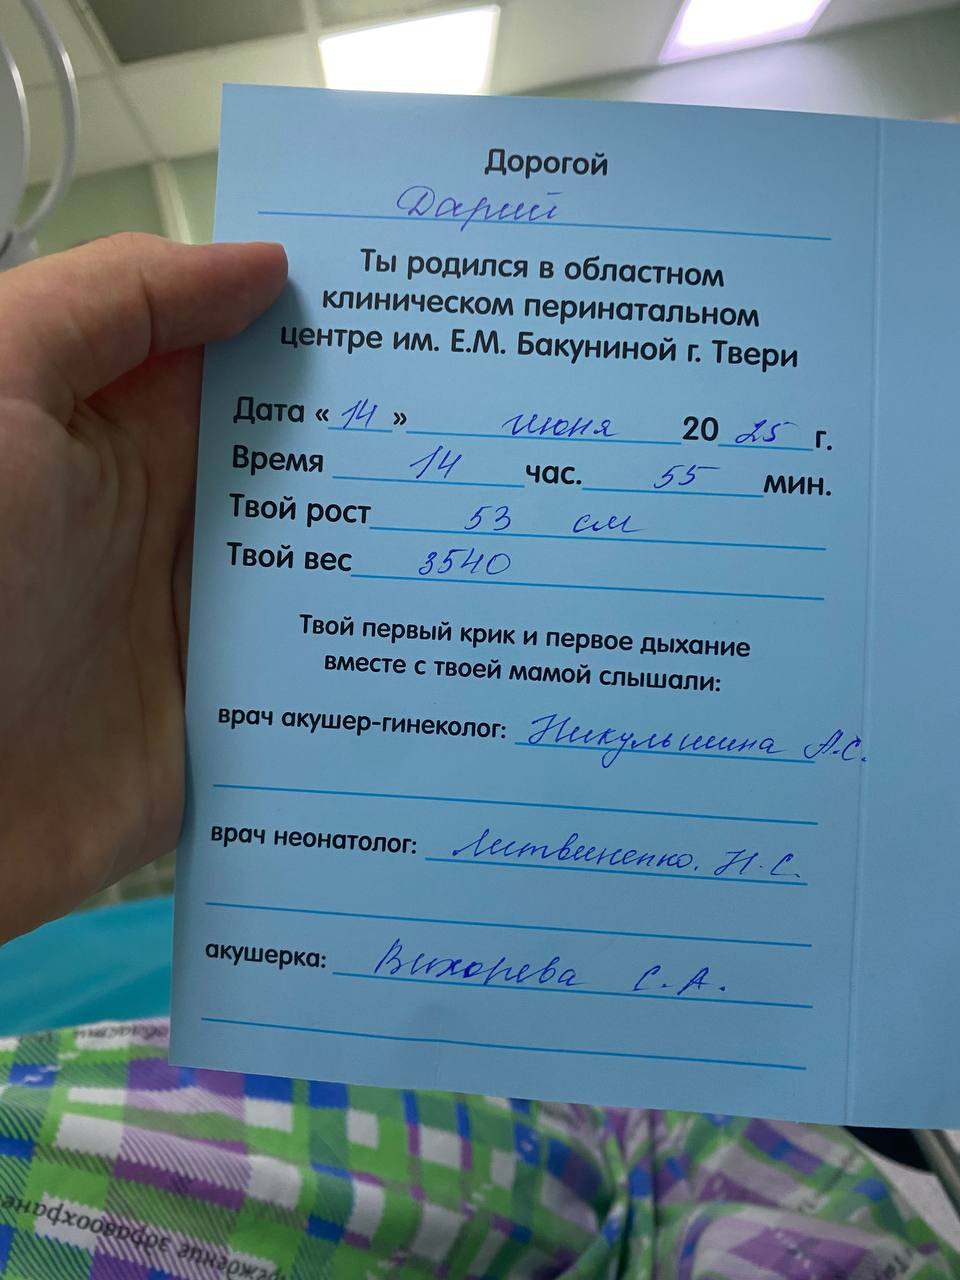 Дорогой
Дарий
Ты родился в областном
клиническом перинатальном
центре им. Е.М. Бакуниной г. Твери
Дата « 14 » июня 20 25 г.
Время 14 час. 55 мин.
Твой рост 53 см
Твой вес 3540
Твой первый крик и первое дыхание
вместе с твоей мамой слышали:
врач акушер-гинеколог: Никульшина А.С.
врач неонатолог: Литвиненко. Н.С.
акушерка: Вихорева С.А.
здравоохране